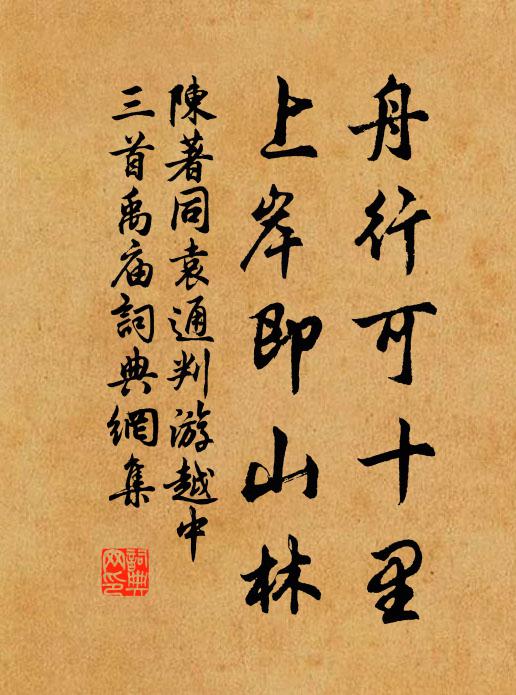 舟行可十里
上岸即山林
陳著同袁通判游越中
三首禹庙詞典網集
詞典網印